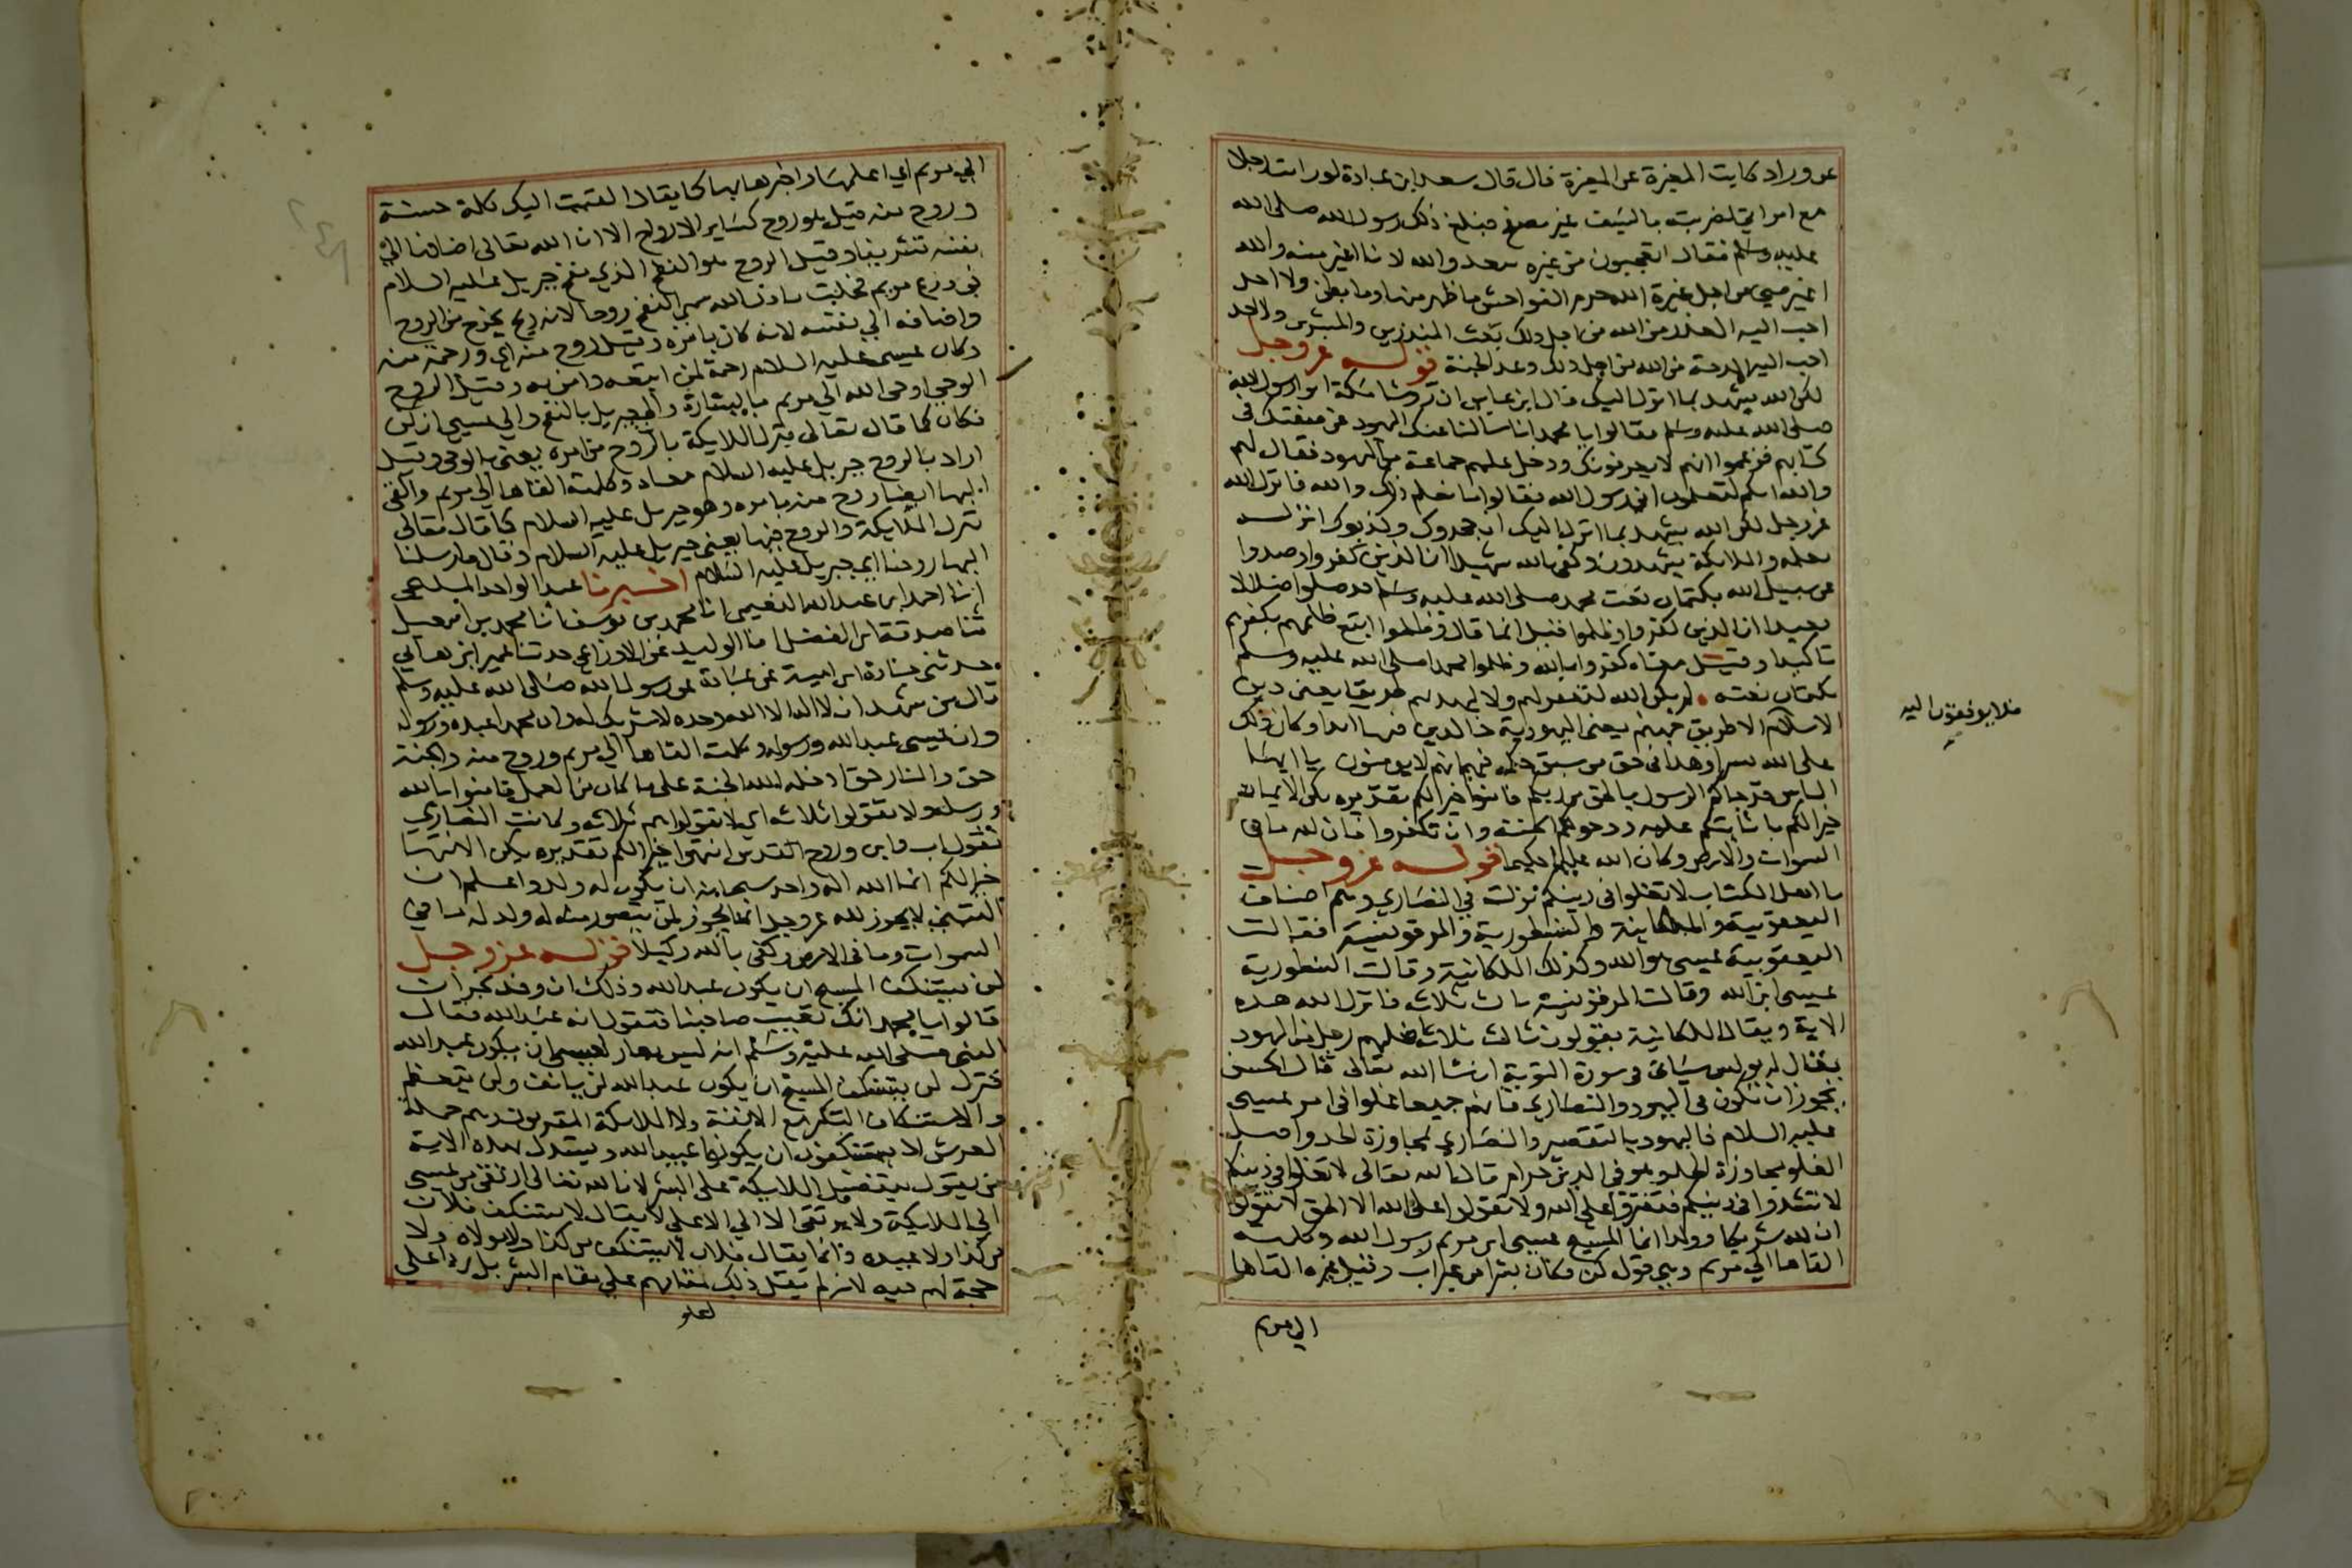 عن وراد كاتب المغيرة عن المغيرة قال قال سعد ابن عبادة لو رايت رجلا
مع امراتي لضربته بالسيف غير مصفح فبلغ ذلك رسول الله صلى الله
عليه وسلم فقال اتعجبون من غيره سعد والله لانا اغير منه والله
اغير مني من اجل غيرة الله حرم الفواحش ما ظهر منها وما بطن ولا احد
احب اليه العذر من الله من اجل ذلك بعث المنذرين والمبشرين ولا احد
احب اليه المدحة من الله من اجل ذلك وعد الجنة قوله عز وجل
لكن الله يشهد بما انزل اليك قال ابن عباس ان روسا مكة اتوا رسول الله
صلى الله عليه وسلم فقالوا يا محمد انا سالنا عنك اليهود عن صفتك في
كتابهم فزعموا انهم لا يعرفونك ودخل عليهم جماعة من اليهود فقال لهم
والله انكم لتعلمون اني رسول الله فقالوا ما نعلم ذلك والله فانزل الله
عز وجل لكن الله يشهد بما انزل اليك ان جحدوك وكذبوك انزله
بعلمه والملايكة يشهدون وكفى بالله شهيدا ان الذين كفروا وصدوا
عن سبيل الله بكتمان نعت محمد صلى الله عليه وسلم قد ضلوا ضلالا
بعيدا ان الذين كفروا وظلموا قيل انما قال وظلموا اتبع ظلمهم بكفرهم
تاكيدا وقيل معناه كفروا بالله وظلموا محمدا صلى الله عليه وسلم
بكتمان نعته لم يكن الله ليغفر لهم ولا ليهديهم طريقا يعني دين
الاسلام الا طريق جهنم يعني اليهودية خالدين فيها ابدا وكان ذلك
على الله يسيرا وهذا في حق من سبق حكمه فيهم انهم لا يومنون يا ايها
الناس قد جاكم الرسول بالحق من ربكم فامنوا خيرا لكم تقديره يكن الايمان
خيرا لكم ما انتم عليه وان تكفروا فان لله ما في
السموات والارض وكان الله عليما حكيما قوله عز وجل
يا اهل الكتاب لا تغلوا في دينكم نزلت في النصاري وهم اصناف
اليعقوبية والملكانية والنسطورية والمرقوسية فقالت
اليعقوبية عيسى هو الله وكذلك الملكانية وقالت النسطورية
عيسى ابن الله وقالت المرقوسية ثالث ثلاثة فانزل الله هذه
الاية ويقال الملكانية يقولون ثالث ثلاثة علمهم رجل من اليهود
يقال له بولس سياتي في سورة التوبة ان شا الله تعالى قال الحسن
يجوز ان تكون في اليهود والنصاري فانهم جميعا غلوا في امر عيسى
عليه السلام فاليهود بالتقصير والنصاري بمجاوزة الحد واصل
الغلو مجاوزة الحد وهو في الدين حرام قال الله تعالى لا تغلوا في دينكم
لا تشددوا في دينكم فتفتروا على الله ولا تقولوا على الله الا الحق لا تقولوا
ان لله شريكا وولدا انما المسيح عيسى ابن مريم رسول الله وكلمته
القاها الي مريم وهي قوله كن فكان بشرا من غير اب وقيل غيره القاها
الي مريم
فلا يوفقون اليه
الي مريم اي اعلمها واخبرها بها كما يقال القيت اليك كلمة حسنة
وروح منه قيل هو روح كساير الارواح الا ان الله تعالى اضافه الي
نفسه تشريفا وقيل الروح هو النفخ الذي نفخ جبريل عليه السلام
في درع مريم فحملت باذن الله سمي النفخ روحا لانه ريح يخرج من الروح
واضافه الي نفسه لانه كان بامره وقيل روح منه اي ورحمة منه
وكان عيسى عليه السلام رحمة لمن اتبعه وامن به وقيل الروح
الوحي اوحى الله الي مريم بالبشارة والي جبريل بالنفخ والي عيسى ان كن
فكان كما قال تعالى ينزل الملايكة بالروح من امره يعني بالوحي وقيل
اراد بالروح جبريل عليه السلام معناه وكلمته القاها الي مريم والقى
اليها ايضا روح منه بامره وهو جبريل عليه السلام كما قال تعالى
تنزل الملايكة والروح فيها يعني جبريل عليه السلام وقال فارسلنا
اليها روحنا اي جبريل عليه السلام اخبرنا عبد الواحد المليحي
انا احمد ابن عبد الله النعيمي انا محمد بن يوسف انا محمد بن اسمعيل
ثنا صدقة ابن الفضل انا الوليد عن الاوزاعي حدثنا عمير ابن هاني
حدثني جنادة ابن امية عن عبادة عن رسول الله صلى الله عليه وسلم
قال من شهد ان لا اله الا الله وحده لا شريك له وان محمدا عبده ورسوله
وان عيسى عبد الله ورسوله وكلمته القاها الي مريم وروح منه والجنة
حق والنار حق ادخله الله الجنة على ما كان من العمل فامنوا بالله
ورسله ولا تقولوا ثلاثة اي لا تقولوا هم ثلاثة وكانت النصاري
تقول اب وابن وروح القدس انتهوا خيرا لكم تقديره يكن الانتها
خيرا لكم انما الله اله واحد سبحانه ان يكون له ولد واعلم ان
التبني لا يجوز لله عز وجل انما يجوز لمن يتصور منه له ولد له ما في
السموات وما في الارض وكفى بالله وكيلا قوله عز وجل
لن يستنكف المسيح ان يكون عبد الله وذلك ان وفد نجران
قالوا يا محمد انك تعيب صاحبنا فتقول انه عبد الله فقال
النبي صلى الله عليه وسلم انه ليس بعار لعيسى ان يكون عبد الله
فنزل لن يستنكف المسيح ان يكون عبدا لله لن يانف ولن يتعظم
والاستنكاف التكبر مع الانفة ولا الملايكة المقربون وهم حملة
العرش لا يستنكفون ان يكونوا عبيدا لله ويستدل بهذه الاية
من يقول بتفضيل الملايكة على البشر لان الله تعالى ارتقى من عيسى
الي الملايكة ولا يرتقى الا الي الاعلي لا يقال لا يستنكف فلان
من كذا ولا عبيده وانما يقال فلان لا يستنكف من كذا ولا مولاه ولا
حجة لهم فيه لانه لم يقل ذلك رفعا لمقامهم على مقام البشر بل ردا على